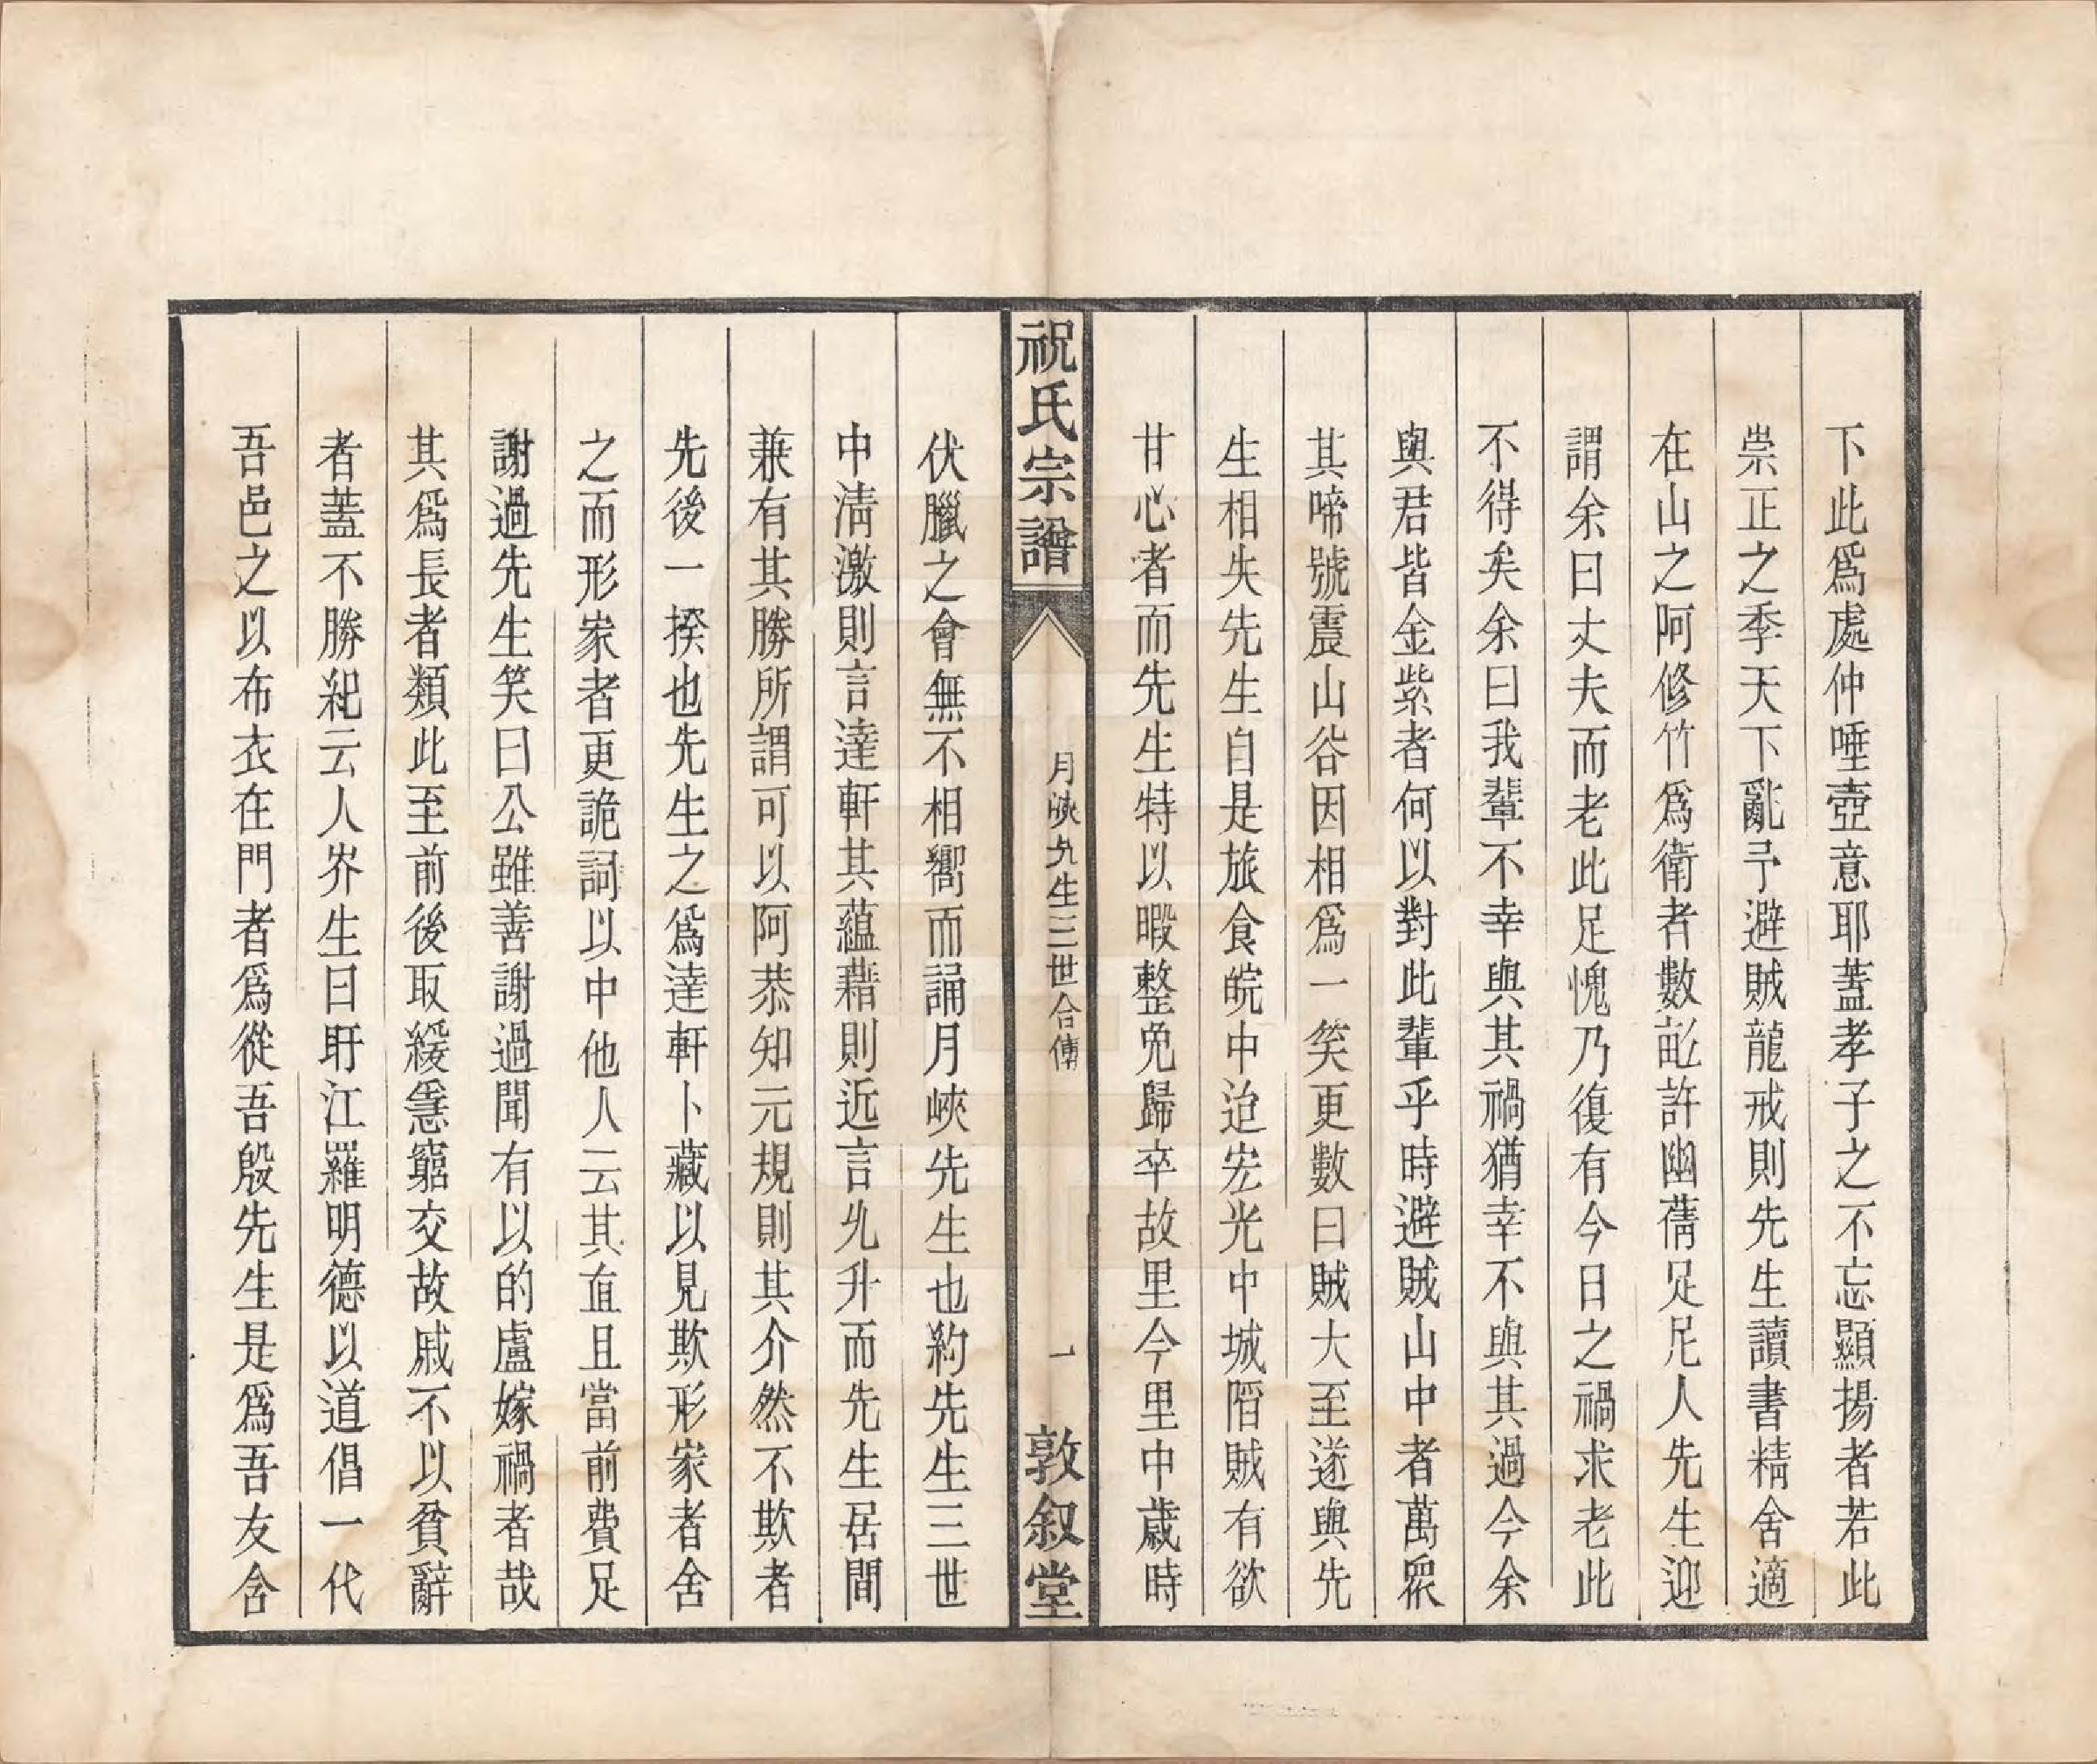 下此爲處仲唾壺意耶蓋孝子之不忘顯揚者若此
崇正之季天下亂予避賊龍戒則先生讀書精舍適
在山之阿修竹爲衛者數畝許幽蒨足足人先生迎
謂余曰丈夫而老此足愧乃復有今日之禍求老此
不得矣余曰我輩不幸與其禍猶幸不與其過今余
與君皆金紫者何以對此輩乎時避賊山中者萬眾
其啼號震山谷因相爲一笑更數日賊大至遂與先
生相失先生自是旅食皖中迨宏光中城陷賊有欲
甘心者而先生特以暇整免歸卒故里今里中歲時
祝氏宗譜
月峽先生三世合傳
一
敦叙堂
伏臘之會無不相嚮而誦月峽先生也約先生三世
中淸激則言達軒其蘊藉則近言允升而先生居間
兼有其勝所謂可以阿恭知元規則其介然不欺者
先後一揆也先生之爲達軒卜藏以見欺形家者舍
之而形家者更詭詞以中他人云其直且當前費足
謝過先生笑曰公雖善謝過聞有以的盧嫁禍者哉
其爲長者類此至前後取緩急窮交故戚不以貧辭
者蓋不勝紀云人岕生曰盱江羅明德以道倡一代
吾邑之以布衣在門者爲從吾殷先生是爲吾友含